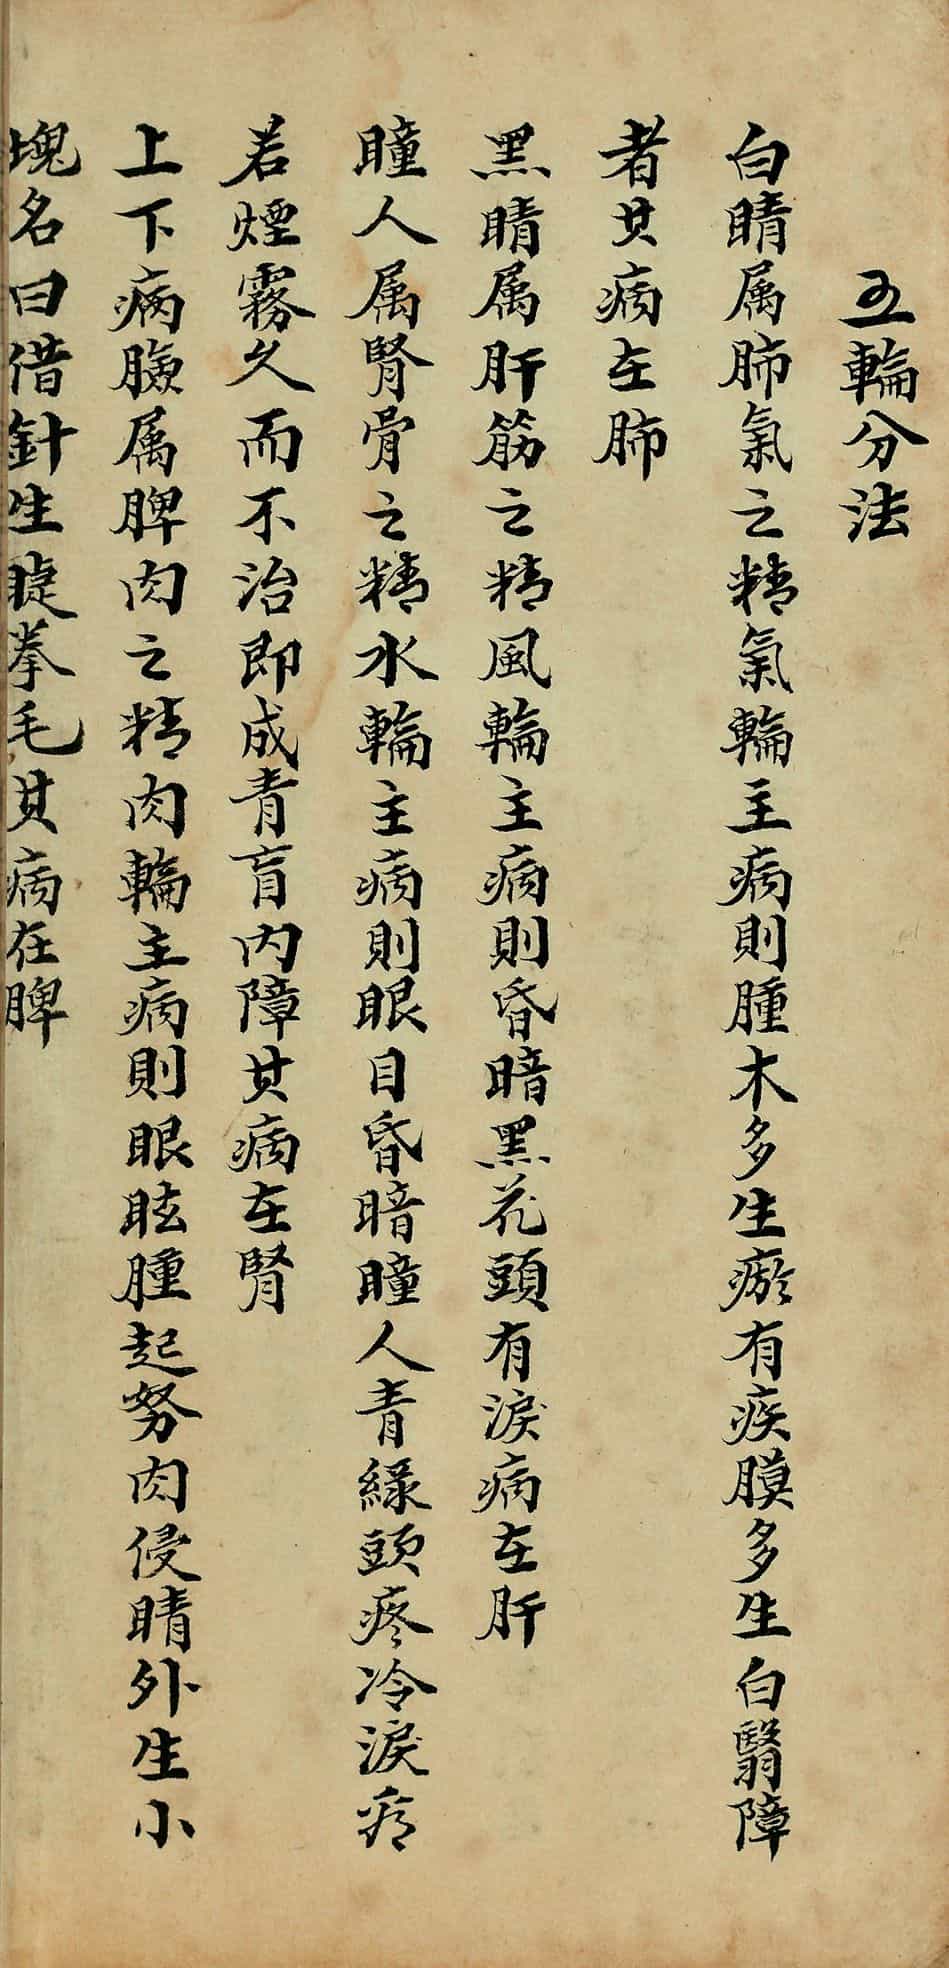 五輪分法
白睛属肺氣之精氣輪主病則腫木多生瘀有疾膜多生白翳障
者其病在肺
黑睛属肝筋之精風輪主病則昏暗黑花頭有淚病在肝
瞳人属腎骨之精水輪主病則眼目昏暗瞳人青緑頭疼冷淚
若煙霧久而不治即成青盲内障其病在腎
上下病臉属脾肉之精肉輪主病則眼眩腫起努肉侵睛外生小
塊名曰借針生睫拳毛其病在脾